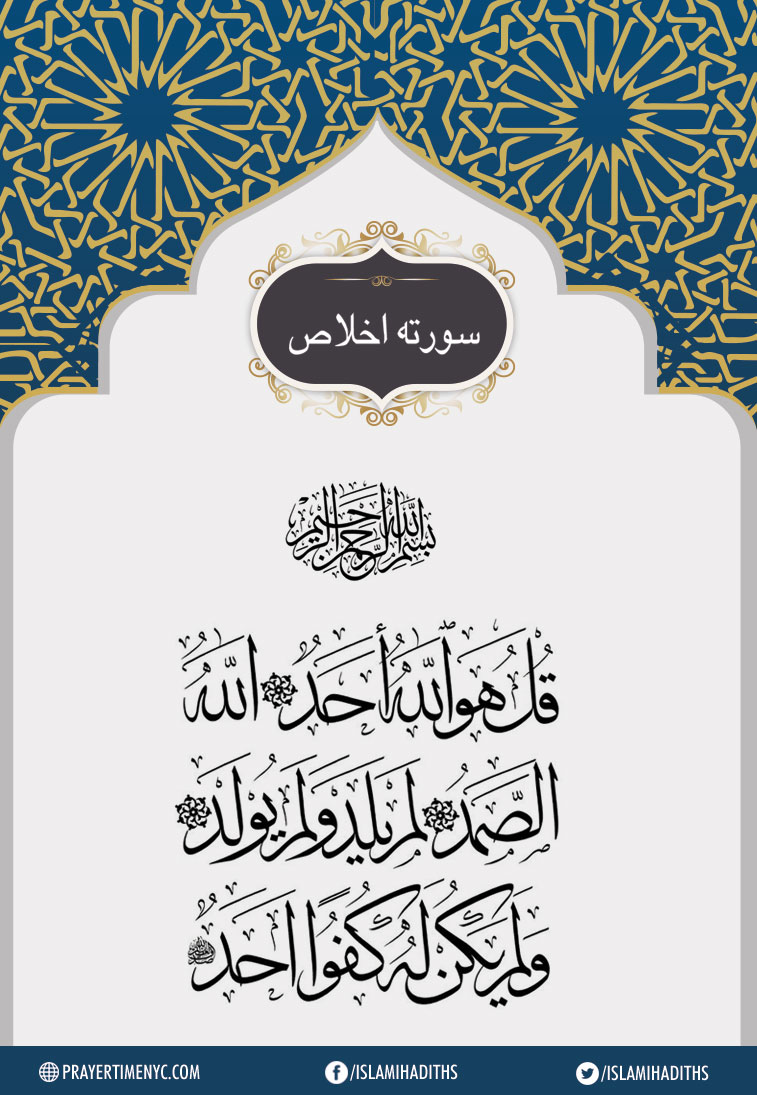 سورته اخلاص
بسم الله الرحمن الرحيم
قُلْ هُوَ اللَّهُ أَحَدٌ اللَّهُ
الصَّمَدُ لَمْ يَلِدْ وَلَمْ يُولَدْ
وَلَمْ يَكُنْ لَهُ كُفُوًا احَدٌ
PRAYERTIMENYC.COM
/ISLAMIHADITHS
/ISLAMIHADITHS